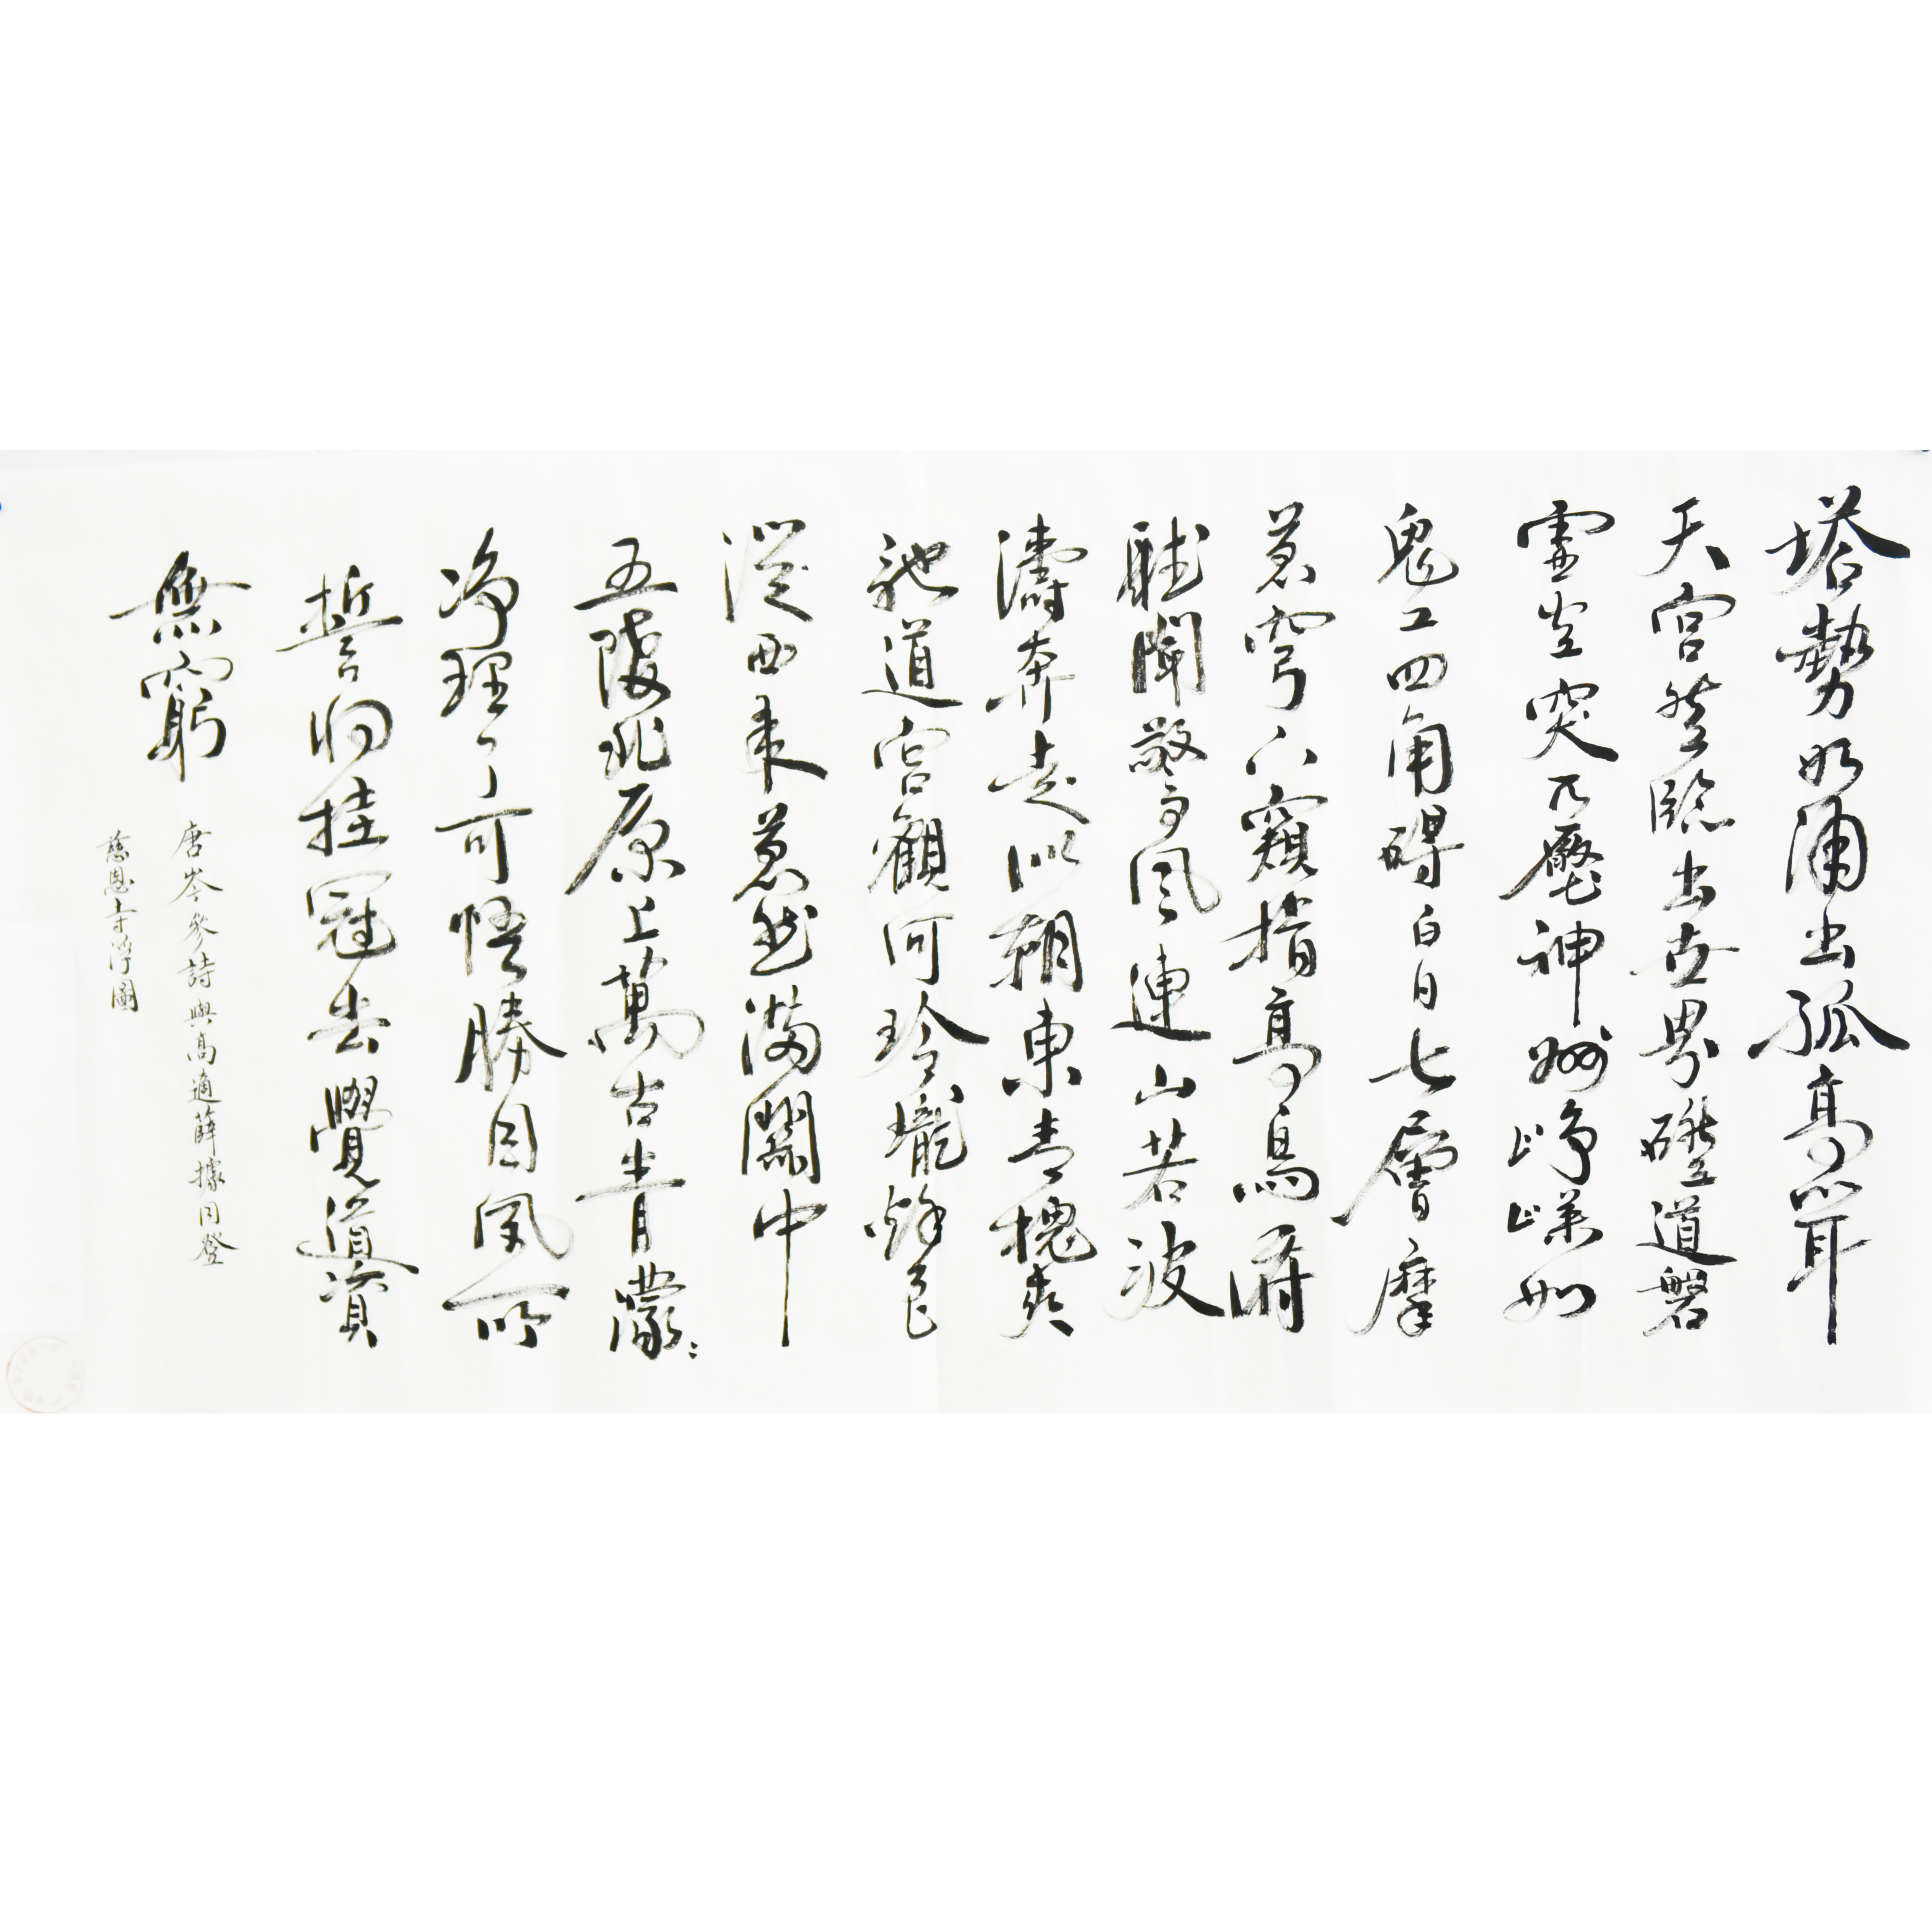 塔勢如涌出孤高聳
天宮登臨出世界磴道磐
虛空突兀壓神州崢嶸如
鬼工四角碍白日七層摩
蒼穹下窺指高鳥俯
聽聞驚風連山若波
濤奔走似朝東青槐夾
馳道宮觀何玲瓏秋色
從西來蒼然滿關中
五陵北原上萬古青濛濛
净理了可悟勝因夙所
誓將挂冠去覺道資
無窮
唐岑參詩與高適薛據同登
慈恩寺浮圖